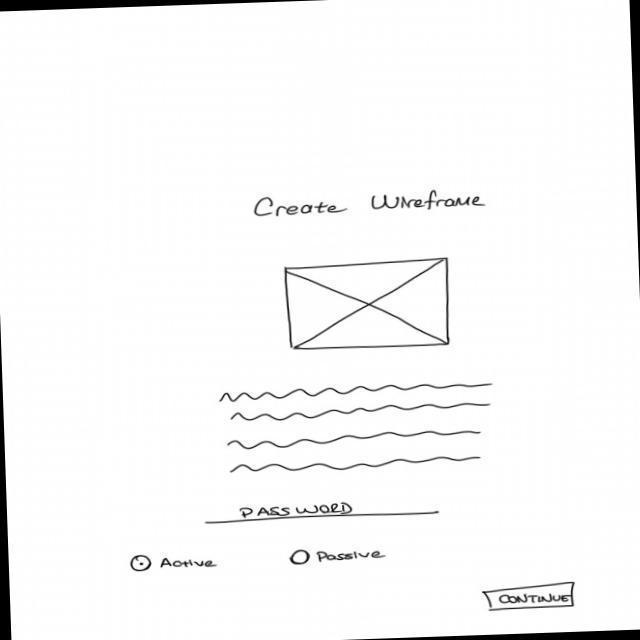 Create Wireframe
PASSWORD
Active Passive
CONTINUE